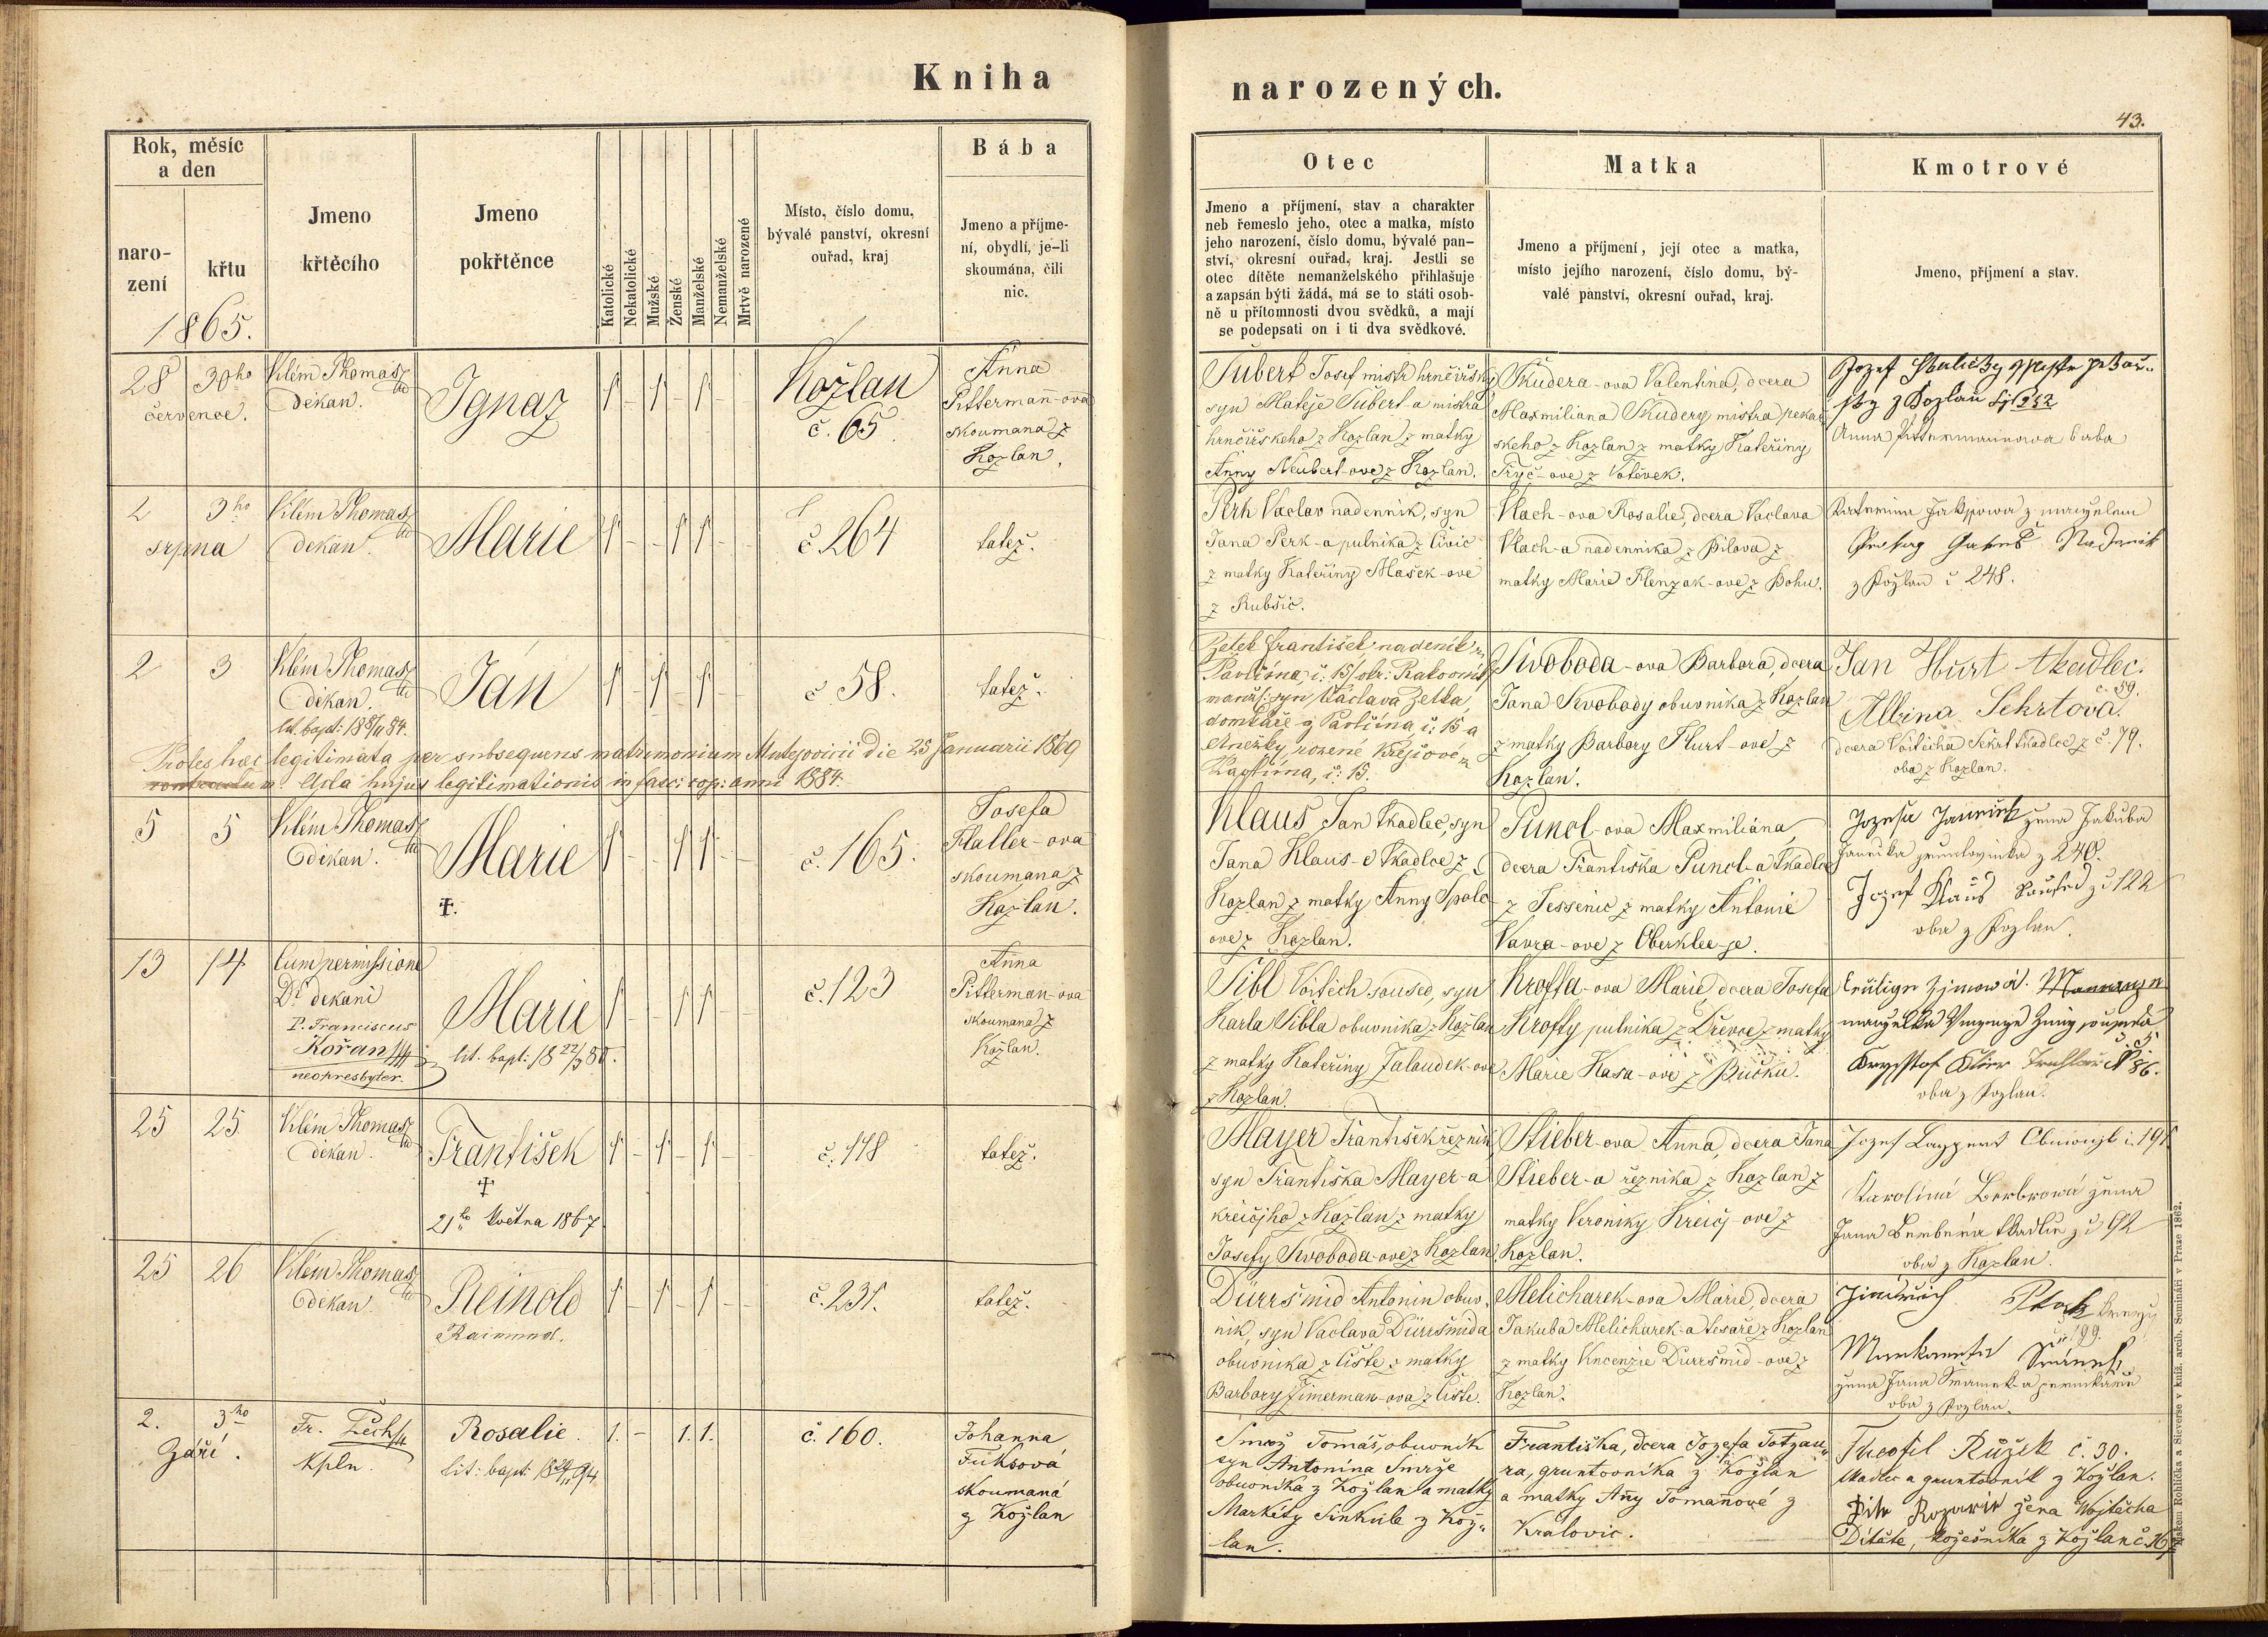 Kniha
narozených.
43.
Rok, měsíc
a den
naro-
zení
křtu
1865.
Jmeno
křtěcího
Jmeno
pokřtěnce
Katolické
Nekatolické
Mužské
Ženské
Manželské
Nemanželské
Mrtvě narozené
Místo, číslo domu,
bývalé panství, okresní
ouřad, kraj
Bába
Jmeno a příjme-
ní, obydlí, je-li
skoumána, čili
nic.
Otec
Jmeno a příjmení, stav a charakter
neb řemeslo jeho, otec a matka, místo
jeho narození, číslo domu, bývalé pan-
ství, okresní ouřad, kraj. Jestli se
otec dítěte nemanželského přihlašuje
a zapsán býti žádá, má se to státi osob-
ně u přítomnosti dvou svědků, a mají
se podepsati on i ti dva svědkové.
Matka
Jmeno a příjmení, její otec a matka,
místo jejího narození, číslo domu, bý-
valé panství, okresní ouřad, kraj.
Kmotrové
Jmeno, příjmení a stav.
28 30ho
července.
Vilém Thomas
děkan.
Ignaz
1 - 1 - 1 -
Kožlan
č. 65.
Anna
Pitterman-ova
skoumana z
Kozlan.
Šubert Josef mistr hrnčířský
syn Matěje Šubert-a mistra
hrnčířskeho z Kozlan z matky
Anny Neubert-ove z Kozlan.
Škudera-ova Valentina, dcera
Maxmiliana Škudery mistra pekař
skeho z Kozlan z matky Kateřiny
Tryč-ove z Votěvek.
Jozef
z Kozlan
Anna Pittermannowa baba
2 3ho
srpna
Vilém Thomas
děkan.
Marie
1 - - 1 1 -
č. 264
tatež.
Perk Vaclav nadennik, syn
Jana Perk-a pulnika z Čivic
z matky Kateřiny Mašek-ove
z Rubšic.
Vlach-ova Rosalie, dcera Vaclava
Vlach-a nadennika z Bilova z
matky Marie Flenzak-ove z Bohu.
z Kožlan č 248.
2 3
Vilém Thomas
děkan.
lit. bapt: 18 8/11 84.
Jan
1 - 1 - 1 -
č 58.
tatež.
Zetek František nadeník z
Pavlíkna, č: 15/ okr: Rakovník
manž: syn Václava Zetka,
domkaře z Pavlíkna č: 15 a
Anežky rozené Krejčové z
č: 15.
Swoboda-ova Barbora, dcera
Jana Svobody obuvnika z Kozlan
z matky Barbory Hurt-ove z
Kozlan.
Jan Hurt tkadlec.
č. 59.
Albina Sehrtova.
dcera Voitěcha Sehrt tkadlce z č. 79.
oba z Kozlan.
Proles hæc legitimata per subsequens matrimonium Mutejovicii die 25 Januarii 1869
Acta hujus legitimationis in fasc: cop: anni 1884.
5 5
Vilém Thomas
děkan.
Marie
†.
1 - - 1 1 - -
č. 165.
Josefa
Haller-ova
skoumana z
Kozlan.
Klaus Jan tkadlec, syn
Jana Klaus-e tkadlce z
Kozlan z matky Anny Spolc
ove z Kozlan.
Puncl-ova Maxmiliána
dcera Františka Puncl-a tkadlce
z Jessenic z matky Antonie
Vavra-ove z Oberklee-je.
žena Jakuba
z 240.
Jozef Klaus Soused z č 122
oba z Kozlan.
13 14
Cum permissione
Di dekani
P. Franciscus
Kořan
neopresbyter.
Marie
lit. bapt: 18 22/3 80.
1 - - 1 1 - -
č. 123
Anna
Pitterman-ova
skoumana z
Kožlan.
Vibl Voitěch soused, syn
Karla Vibla obuvnika z Kozlan
z matky Kateřiny Jalaudek-ove
z Kozlan.
Kroffa-ova Marie, dcera Josefa
Kroffy pulnika z Dřevce z matky
Marie Kasa-ove z Bučku.
č. 5
Kryštof Klier Truhlář N 86.
oba z Kozlan.
25 25
Vilém Thomas
děkan.
František
†
21ho května 1867
1 - 1 - 1 - -
č. 118
tatež.
Mayer František řeznik
syn Františka Mayer-a
kreičjho z Kožlan z matky
Josefy Svoboda-ove z Kozlan
Stieber-ova Anna, dcera Jana
Stieber-a řeznika z Kozlan z
matky Veroniky Kreičj-ove z
Kozlan.
Jozef Lappert č. 191
Karolína Berbrowá žena
Jana Berbera tkadlce z č 92
oba z Kozlan.
25 26
Vilém Thomas
děkan.
Reinold
Raimund.
1 - 1 - 1 - -
č. 231.
tatež.
Dürršmid Antonin obuv-
nik, syn Vaclava Dürršmida
obuvnika z Čiste z matky
Barbory Zimerman-ova z Čiste.
Melicharek-ova Marie, dcera
Jakuba Melicharek-a tesaře z Kozlan
z matky Vincenzie Durršmid-ove z
Kozlan.
Jindřich Ptak
č 199.
žena Jana Sramek-a
oba z Kozlan.
2. 3ho
Září.
Fr. Zech
Kpln.
Rosalie.
lit: bapt: 18 24/11 94
1. - 1. 1.
č. 160.
Johanna
Fuksová
skoumaná
z Kožlan
Smrž Tomáš, obuvník
syn Antonína Smrže
obuvníka z Kožlan a matky
Markéty Sinkule z Kož-
lan.
Františka, dcera Jozefa Totzau-
ra, gruntovníka z Kožlan
a matky Any Tomanové z
Kralovic.
Theofil Růžek č. 30.
tkadlec a gruntovník z Kožlan.
žena Wojtěcha
Dítěte, kožešníka z Kožlan č. 167
Tiskem Rohlíčka a Sieverse v kníž. arcib. Semináři v Praze 1862.